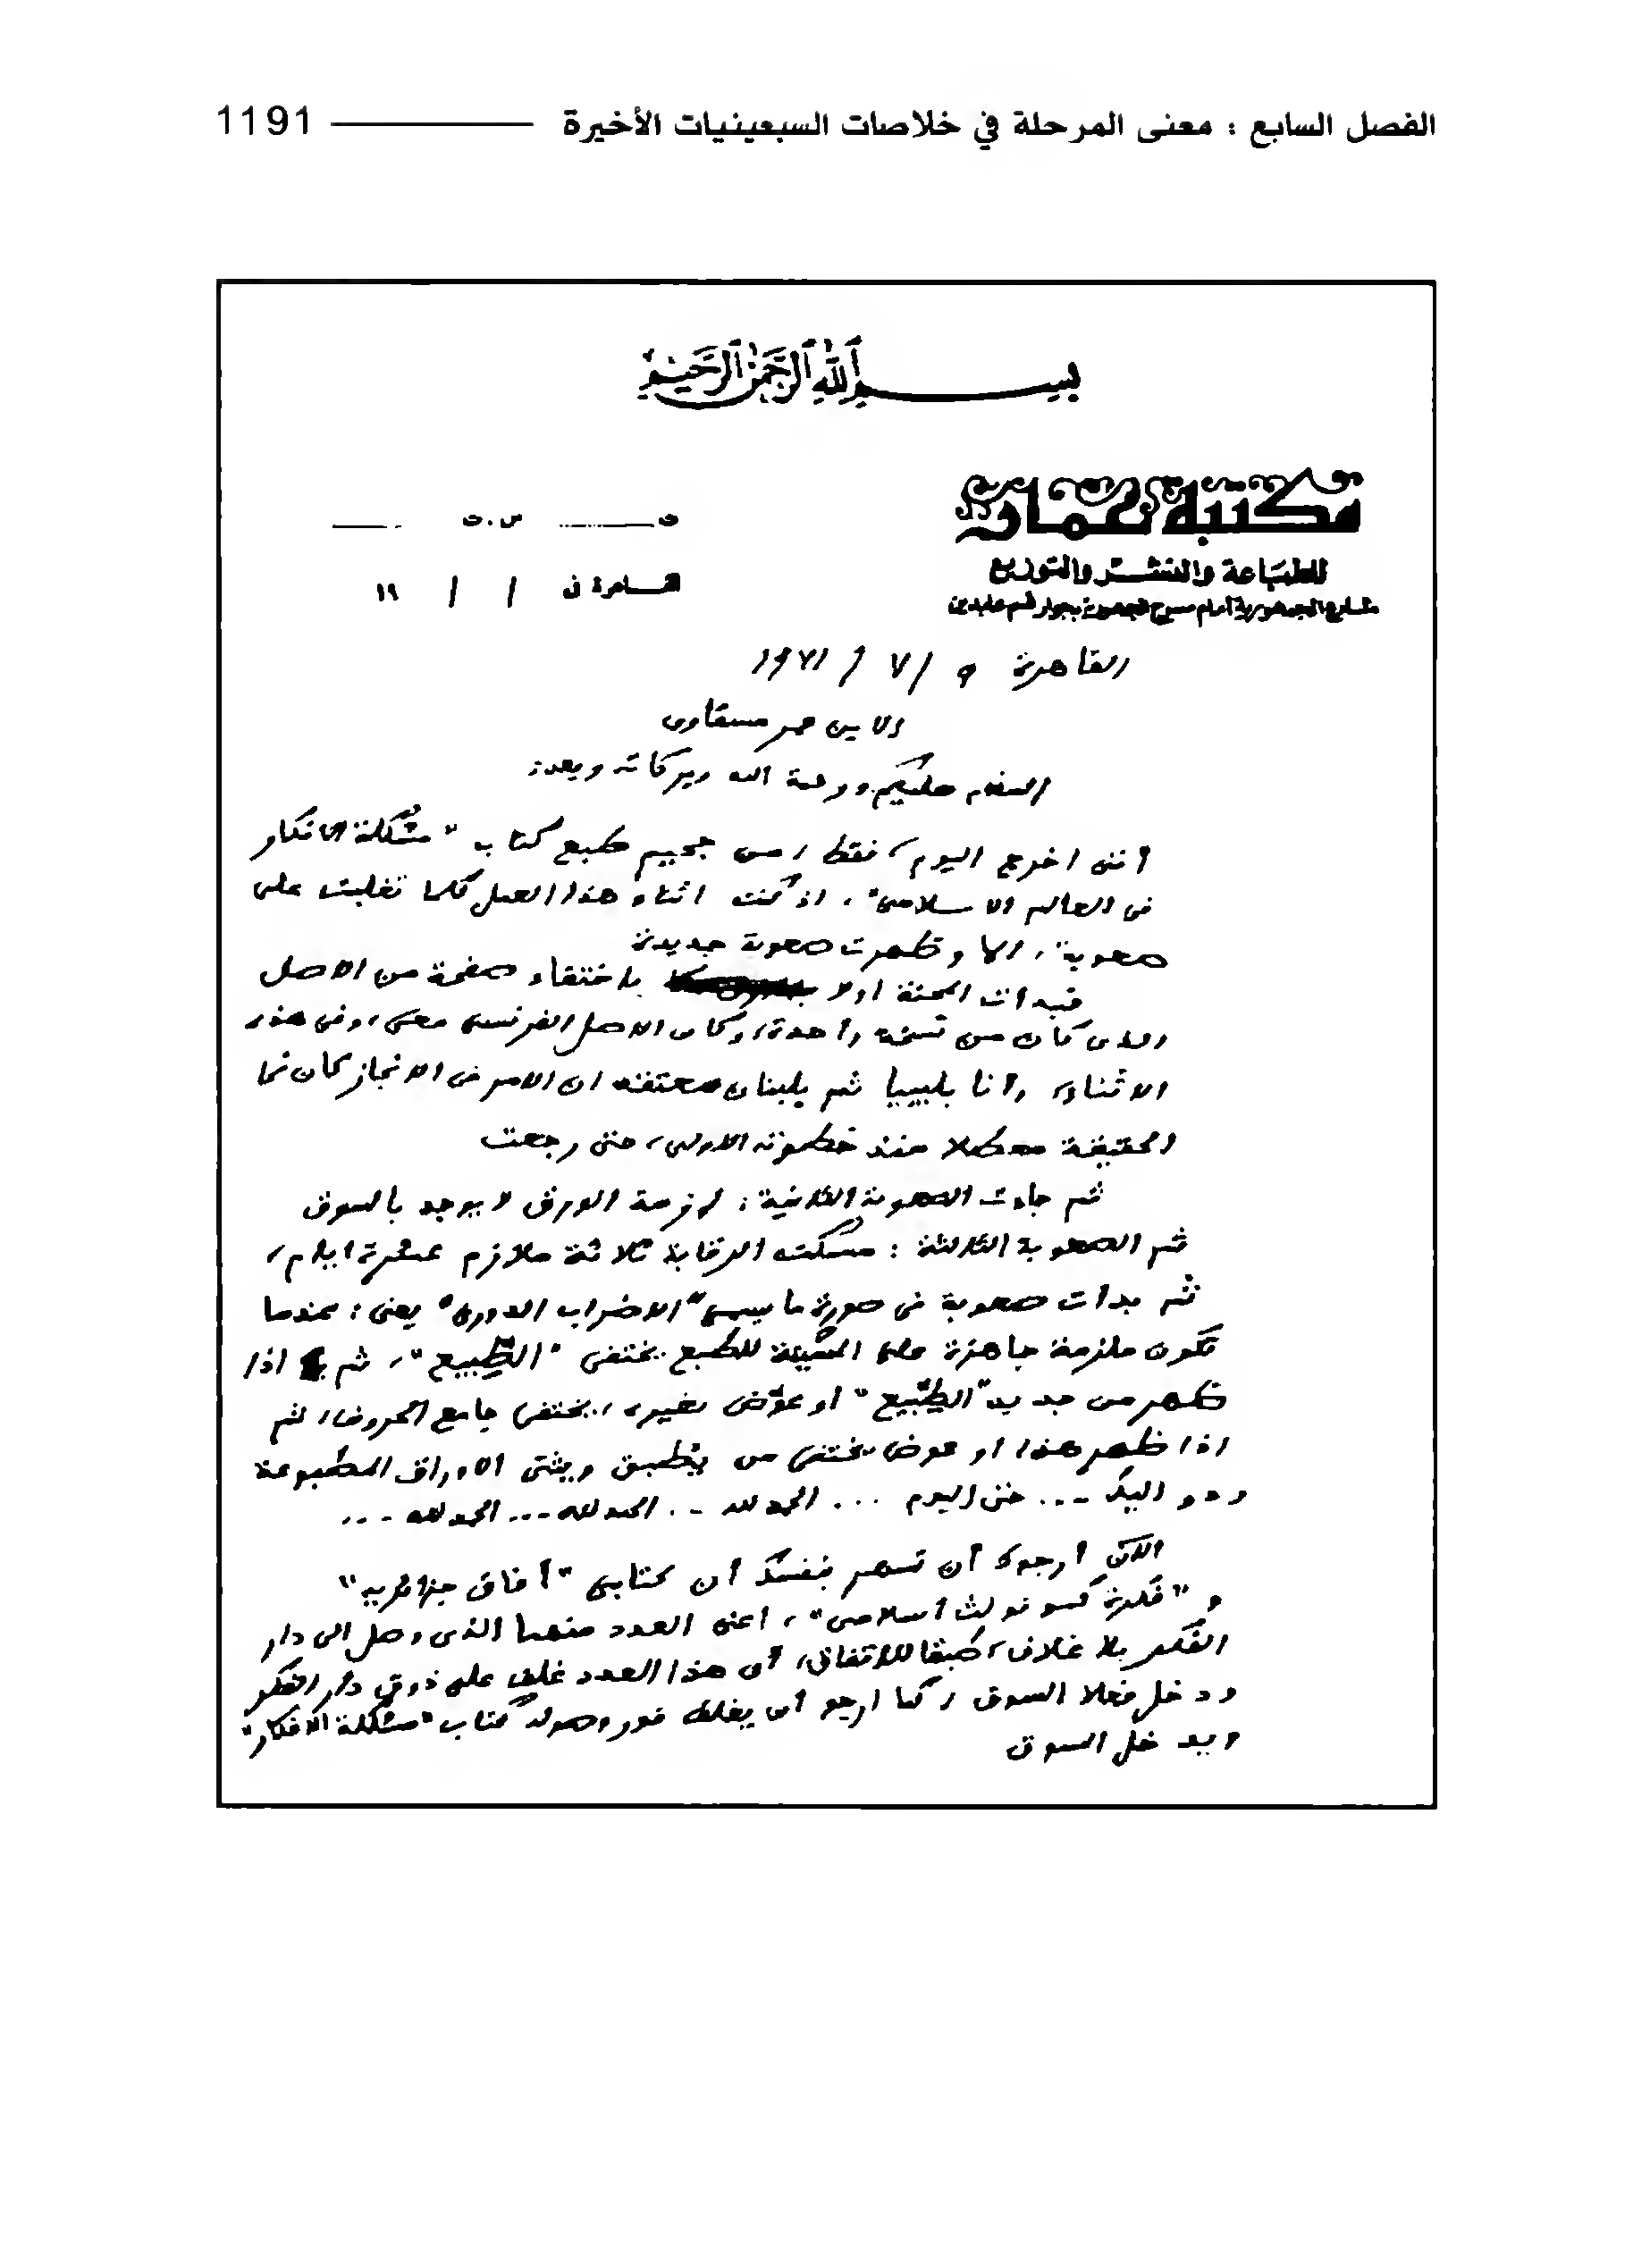 الفصل السابع : معنى المرحلة في خلاصات السبعينيات الأخيرة 1191
بسم الله الرحمن الرحيم
مكتبة عمار
ت س.ت
للطباعة والنشر والتوزيع
القاهرة في / / ١٩
شارع الجمهورية أمام مسرح الجمهورية بجوار قسم عابدين
القاهرة ٩ / ٧ / ١٩٧١
الابن عمر مسقاوى
السلام عليكم ورحمة الله وبركاته وبعد:
أننى اخرج اليوم، فقط، من جحيم طبع كتاب "مشكلة الافكار
فى العالم الاسلامى"، اذ كنت اثناء هذا العمل كلما تغلبت على
صعوبة، الا وظهرت صعوبة جديدة
فبدأت المحنة اولا باختفاء صفحة من الاصل
الذى كان من نسخة واحدة، وكان الاصل الفرنسى معى، وفى هذه
الاثناء، وأنا بليبيا ثم بلبنان معتقد ان الامر فى الانجاز كان فى
الحقيقة معطلا منذ خطوته الاولى، حتى رجعت
ثم جاءت الصعوبة الثانية : لزمة الورق لا يوجد بالسوق
ثم الصعوبة الثالثة : مسكت الرقابة ثلاثة ملازم عشرة ايام،
ثم بدأت صعوبة فى صورة ما يسمى "الاضراب الدورى" يعنى: عندما
تكون ملزمة جاهزة على المكينة للطبع يختفى "الطبيع"، ثم اذا
ظهر من جديد "الطبيع" او عوّض بغيره، يختفى جامع الحروف، ثم
اذا ظهر هذا او عوض يختفى من يطبق ويثنى الاوراق المطبوعة
ودواليك ... حتى اليوم ... الحمد لله ... الحمد لله ... الحمد لله ...
الآن أرجوك أن تسهر بنفسك أن كتابى "أفاق جزائرية"
و "فكرة كمنولث أسلامى"، اعنى العدد منهما الذى وصل الى دار
الفكر بلا غلاف، طبقا للاتفاق، أن هذا العدد غلف على ذوق دار الفكر
ودخل فعلا السوق، كما ارجو أن يغلف فور وصوله كتاب "مشكلة الافكار"
ويدخل السوق